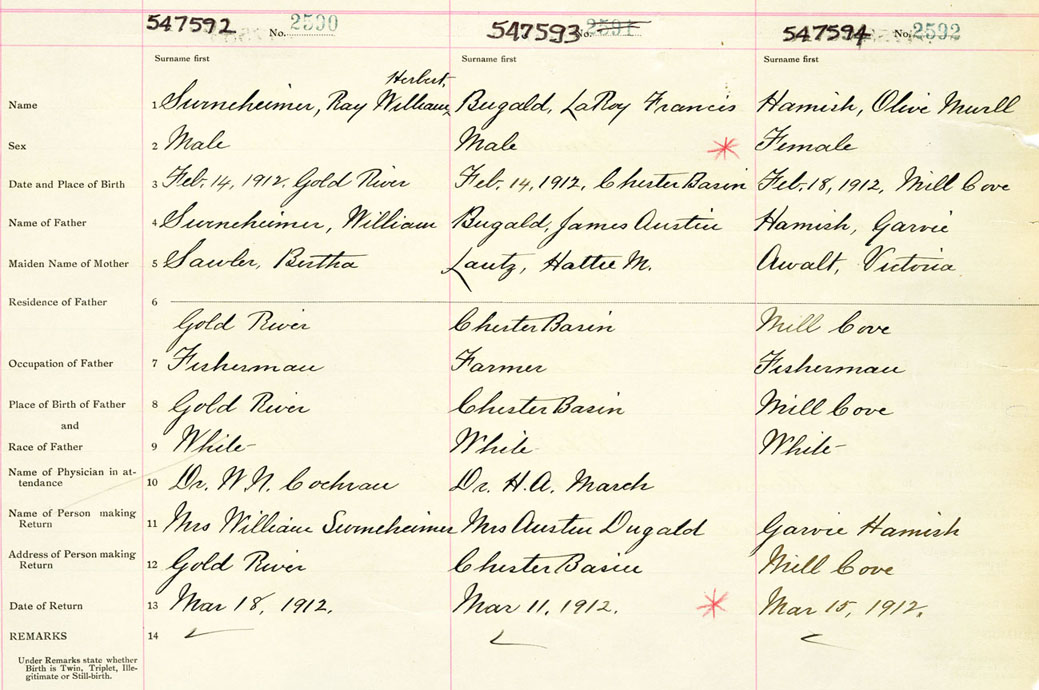 547592 No. 2590 547593 No. 2591 547594 No. 2592
Surname first Surname first Surname first
Herbert.
Name 1 Swineheimer, Ray William Bugald, LaRoy Francis Hamish, Olive
Sex 2 Male Male Female
Date and Place of Birth 3 Feb. 14, 1912. Gold River Feb. 14, 1912, Chester Basin Feb. 18, 1912, Mill Cove
Name of Father 4 Swineheimer, William Bugald, James Austin Hamish, Garvie
Maiden Name of Mother 5 Sawler, Bertha Lantz, Hattie M. Awalt, Victoria
Residence of Father 6
Gold River Chester Basin Mill Cove
Occupation of Father 7 Fisherman Farmer Fisherman
Place of Birth of Father 8 Gold River Chester Basin Mill Cove
and
Race of Father 9 White White White
Name of Physician in at-
tendance 10 Dr. W. N. Cochran Dr. H. A. March
Name of Person making
Return 11 Mrs William Swineheimer Mrs Austin Dugald Garvie Hamish
Address of Person making
Return 12 Gold River Chester Basin Mill Cove
Date of Return 13 Mar 18, 1912. Mar 11, 1912. Mar 15, 1912.
REMARKS 14
Under Remarks state whether
Birth is Twin, Triplet, Ille-
gitimate or Still-birth.